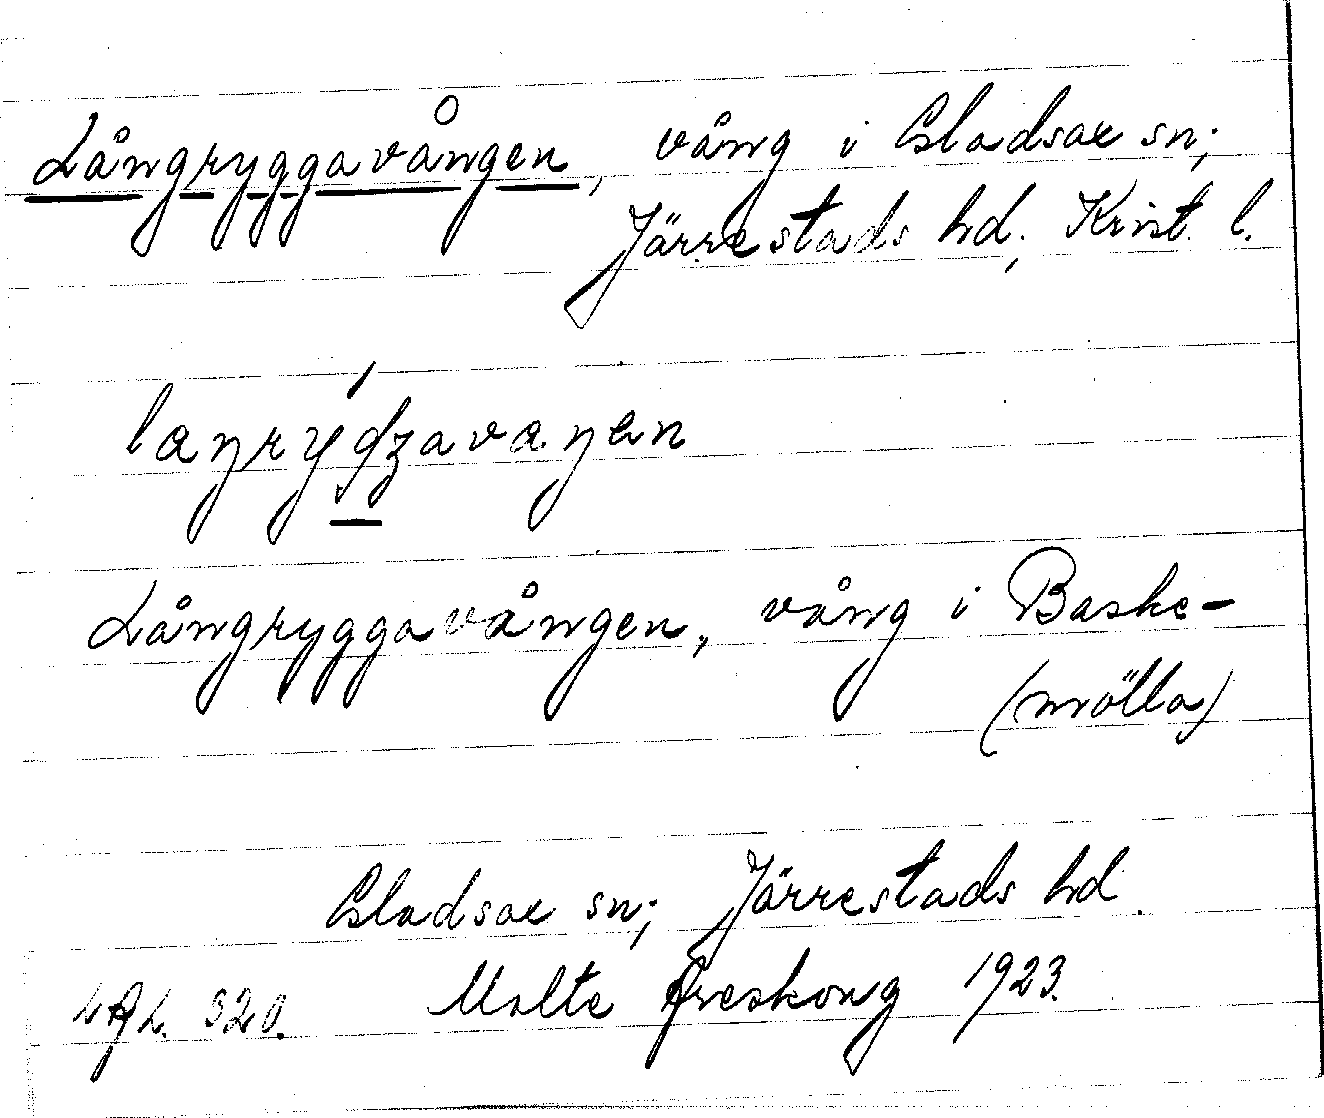 Långryggavången, vång i Gladsax sn;
Järrestads hd, Krist. l.
laŋrýdzavaŋen
Långryggavången, vång i Baske-
(mölla)
Gladsax sn; Järrestads hd.
LAL. 320. Malte Areskoug 1923.